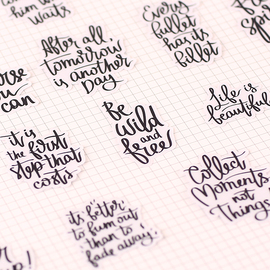 Waits
After all,
tomorrow
is another
Day
Every
bullet
has its
billet
can
Be
Wild
and
free
Life is
beautiful
it is
the first
step that
costs
Collect
Moments
not
Things
it's better
to burn out
than to
fade away!